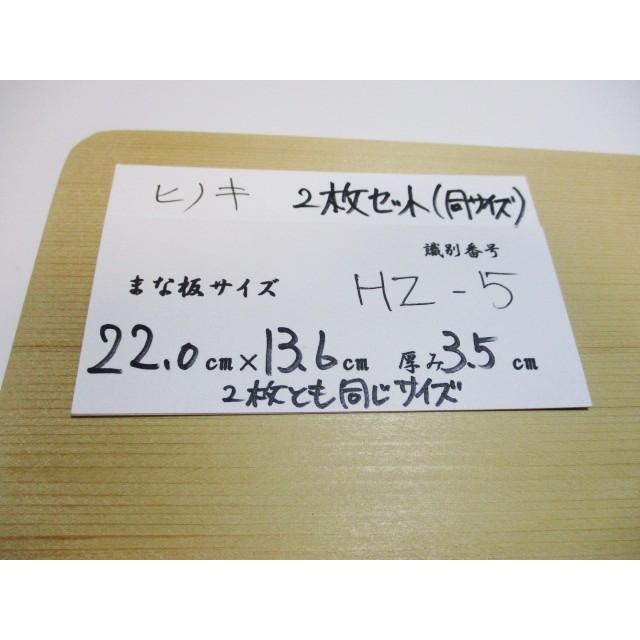 ヒノキ 2枚セット(同サイズ)
識別番号
まな板サイズ HZ-5
22.0cm×13.6cm 厚み3.5cm
2枚とも同じサイズ